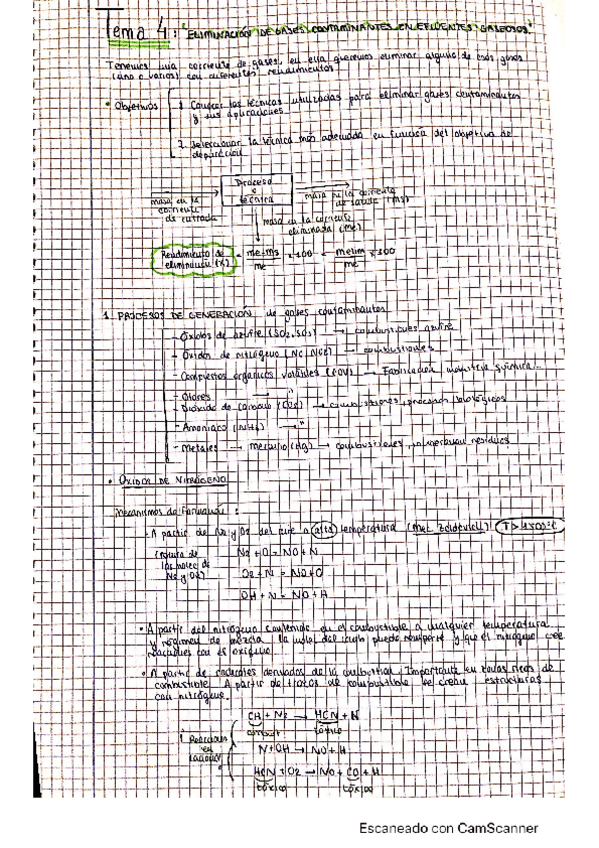 Tema 4: "ELIMINACIÓN DE GASES CONTAMINANTES EN EFLUENTES GASEOSOS"
Tenemos una corriente de gases, en ella queremos eliminar alguno de esos gases
(uno o varios) con diferentes rendimientos.
• Objetivos
1. Conocer las técnicas utilizadas para eliminar gases contaminantes
y sus aplicaciones
2. Seleccionar la técnica más adecuada en función del objetivo de
depuración
Proceso
o
técnica
masa en la
corriente
de entrada
masa en la corriente
de salida (ms)
masa en la corriente
eliminada (me)
Rendimiento de
eliminación (x) = me-ms / me x 100 = melim / me x 100
1. PROCESOS DE GENERACIÓN de gases contaminantes
- Óxidos de azufre (SO2, SO3) → combustibles azufre
- Óxidos de nitrógeno → combustibles
- Compuestos orgánicos volátiles (COV) → Fabricación industria química...
- Olores → "
- Dióxido de carbono (CO2) → combustiones, procesos biológicos
- Amoniaco (NH3) → "
- Metales → mercurio (Hg) → combustiones, residuos
• OXIDOS DE NITRÓGENO
Mecanismos de Formación:
- A partir de N2 y O2 del aire a alta temperatura
(rotura de
las molec de
N2 y O2)
N2 + O = NO + N
O2 + N = NO + O
OH + N = NO + H
• A partir del nitrógeno contenido en el combustible a cualquier temperatura
y régimen de mezcla. puede romperse y que el nitrógeno
reaccione con el oxígeno.
• A partir de radicales derivados de la combustión. Importante en zonas ricas de
combustible. A partir de trozos de combustible se crean estructuras
con nitrógeno.
CH + N2 → HCN + N
combust tóxico
Reacciones
en
N + OH → NO + H
HCN + O2 → NO + CO + H
tóxico tóxico
Escaneado con CamScanner